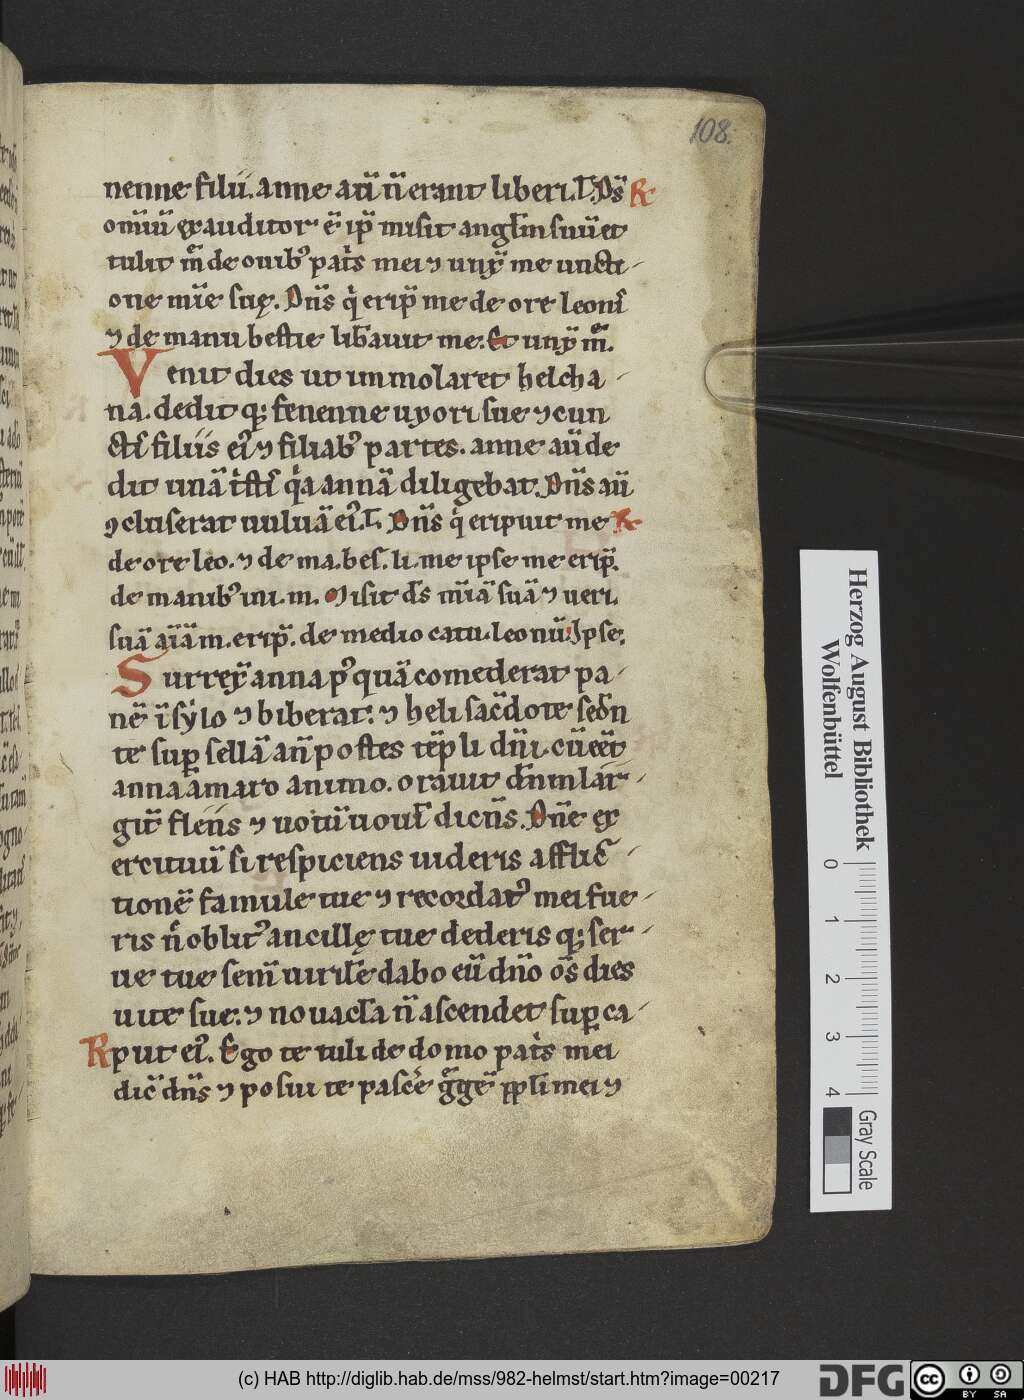 108.
nenne filii. anne aū n̄ erant liberi. T. D̄s R
om̄iū exauditor ē ip̄e misit angl̄m suū et
tulit m̄ de ouib' pat's mei ⁊ unx̄ me uncti-
one mīe suę. Dn̄s q' erip̄ me de ore leonī
⁊ de manu bestie lib̄auit me. Et unx̄ m̄.
Venit dies ut immolaret helcha-
na. dedit q; fenenne uxori sue ⁊ cun
ctī filiis ei' ⁊ filiab' partes. anne aū de
dit unā t'stī q'a annā diligebat. Dn̄s aū
ꝯcluserat uuluā ei'. T. Dn̄s q' eripuit me R
de ore leo. ⁊ de ma. bes. li. me ipse me erip̄.
de manib' ini. m. Misit d̄s m̄iā suā ⁊ ueri.
suā aīā m. erip̄. de medio catu. leonū. Ipse.
Surrex̄ anna p' quā comederat pa-
nē ī sylo ⁊ biberat. ⁊ heli sac̄dote sedn̄
te suꝑ sellā an̄ postes tēpli dn̄i. cū eēt
anna amaro animo. orauit dn̄m lar-
git̄ flens ⁊ uotū uouit dicn̄s. Dn̄e ex
ercituū si respiciens uideris afflic-
tionē famule tue ⁊ recordat' mei fue-
ris n̄ oblit' ancillę tue dederis q; ser-
ue tue sem̄ uirile dabo eū dn̄o om̄s dies
uite sue. ⁊ nouacl̄a n̄ ascendet suꝑ ca-
R put ei'. Ego te tuli de domo pat's mei
dic̄ dn̄s ⁊ posui te pasc̄e g'gē ꝓpl̄i mei ⁊
Herzog August Bibliothek
Wolfenbüttel
0 1 2 3 4
Gray Scale
(c) HAB http://diglib.hab.de/mss/982-helmst/start.htm?image=00217
DFG
cc
BY SA